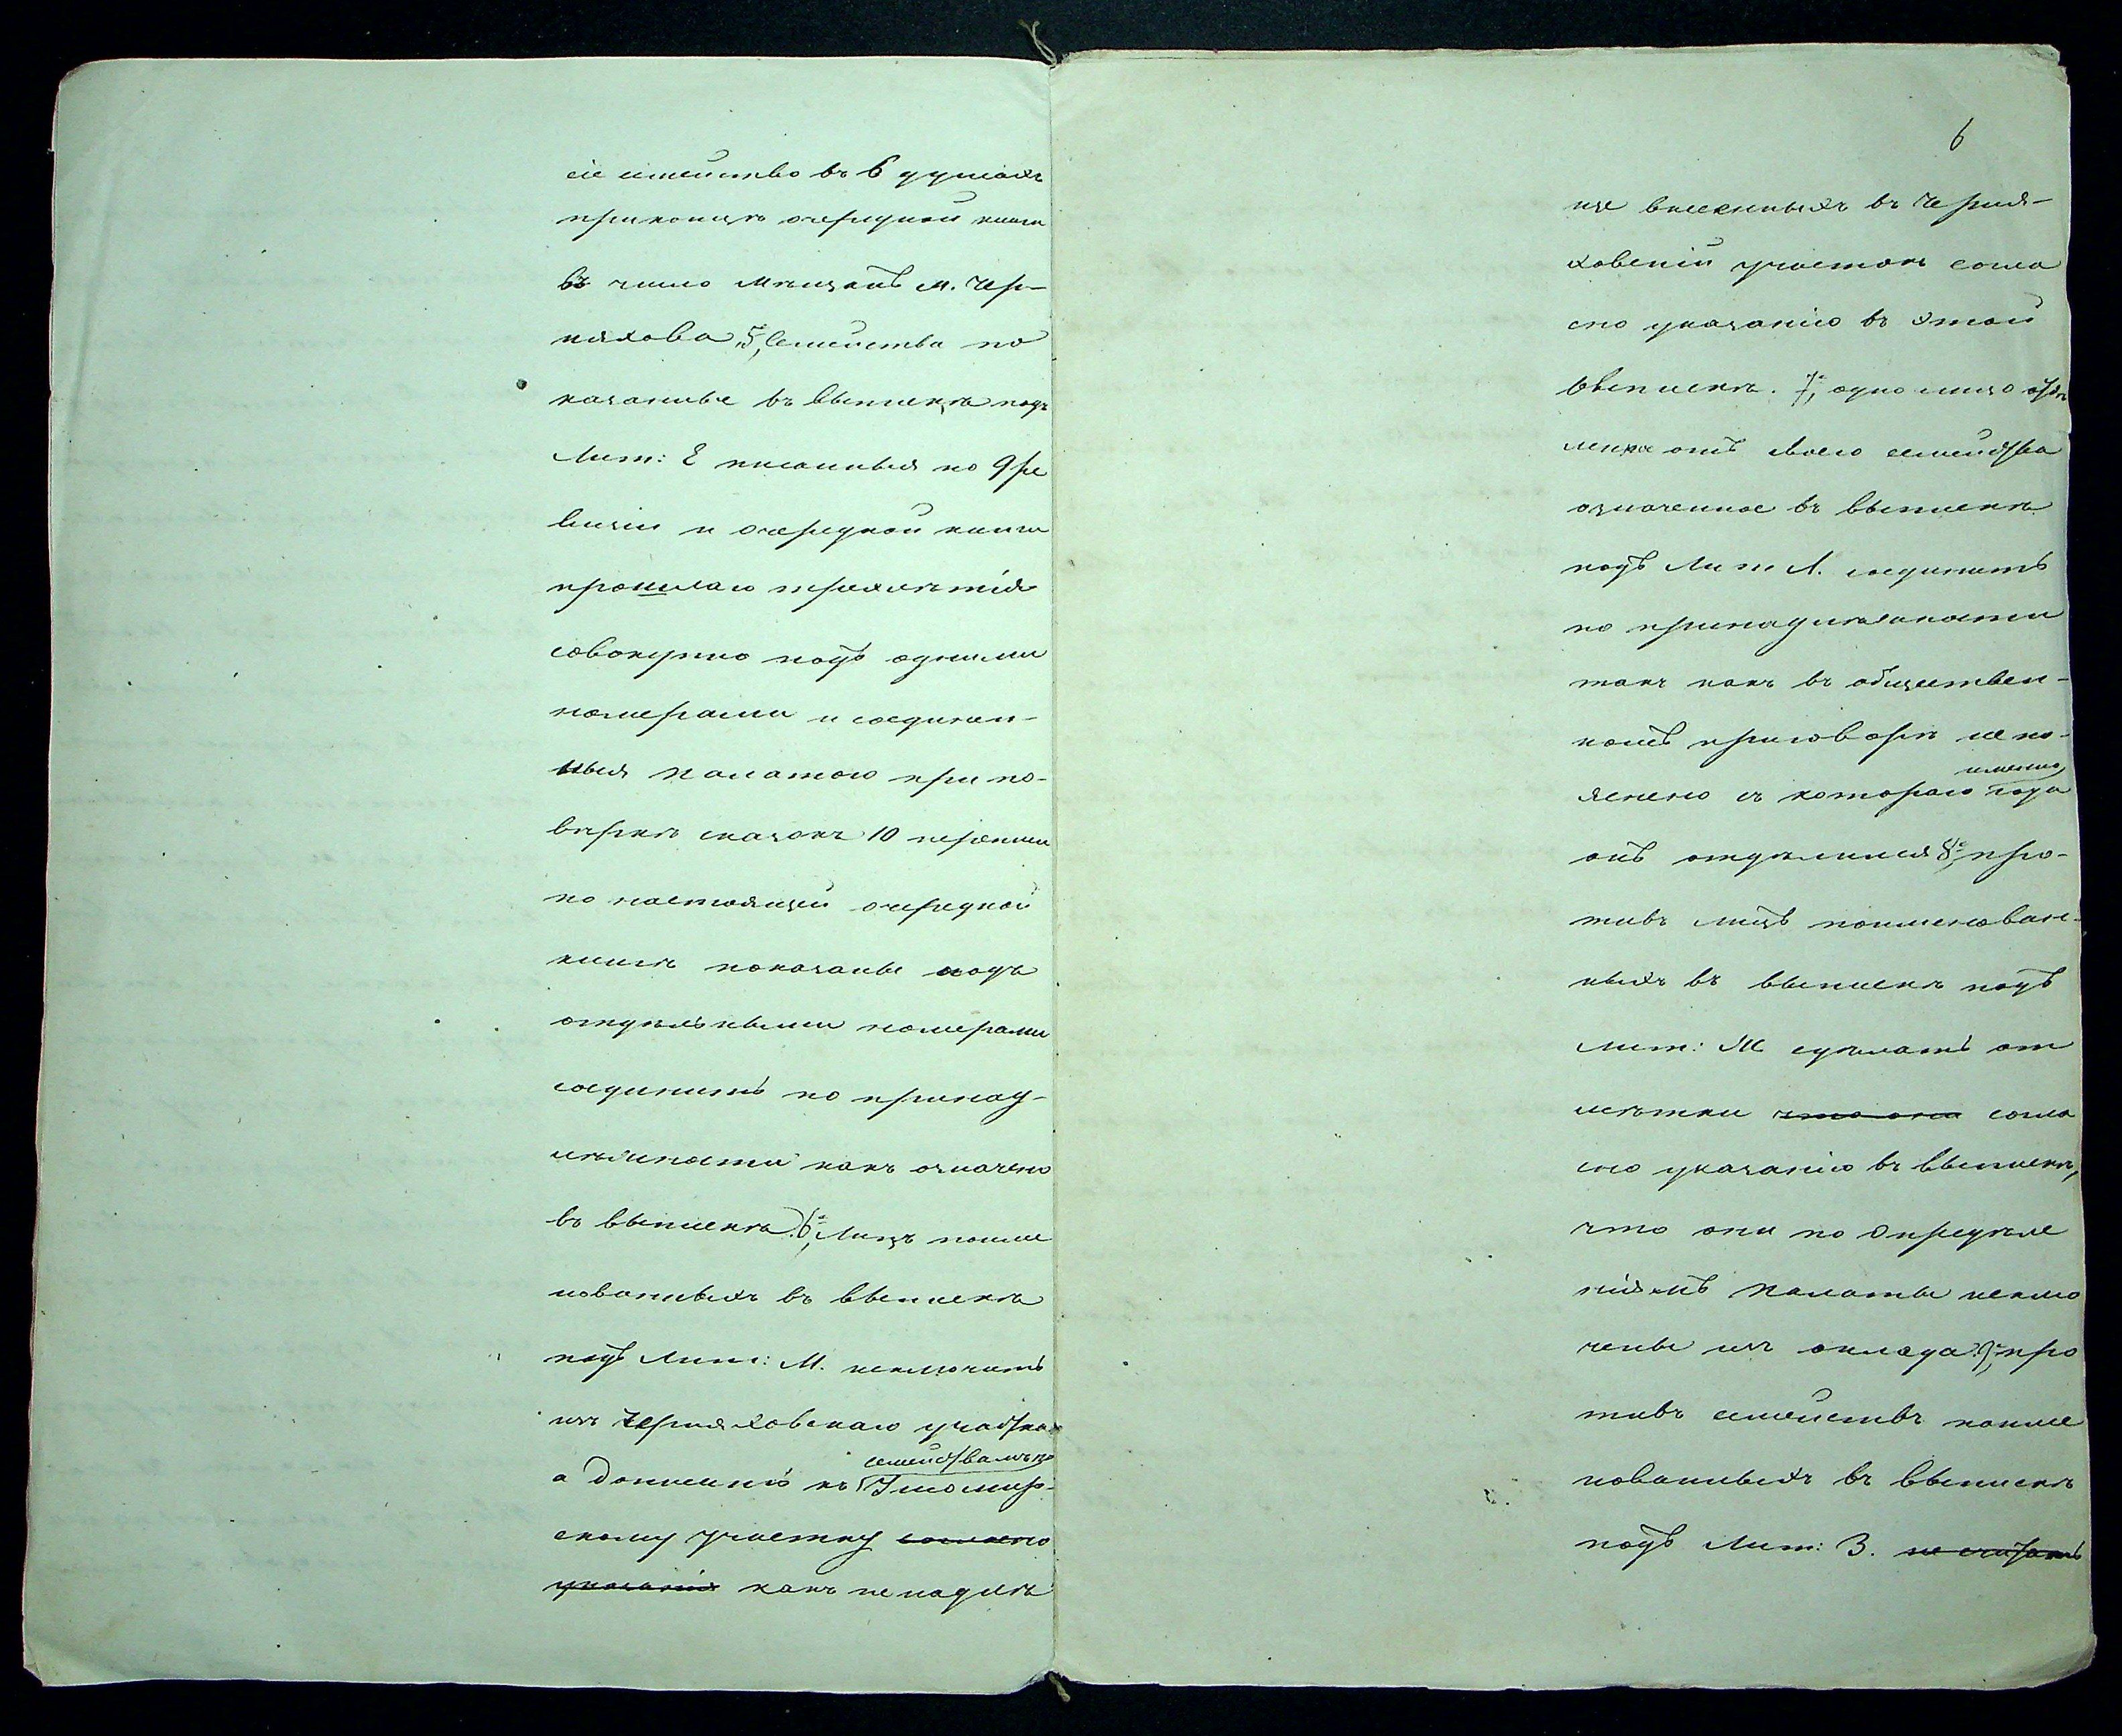 сіе семейство въ 6 душахъ
приконцѣ очередной книги
въ число мѣщанъ м. Чер-
няхова, 5, Семейства по
казанные въ выпискѣ подъ
Лит: Е писанныя по 9 ре
визіи и очередной книги
прошлаго трехлѣтія
совокупно подъ одними
номерами и соединен-
ныя Палатою при по-
вѣркѣ сказокъ 10 переписи
по настоящей очередной
книгѣ показаны подъ
отдѣльными номерами
соединить по принад-
лѣжности какъ означено
въ выпискѣ. 6е, Лицъ поиме
нованныхъ въ выпискѣ
подъ Лит: М. исключить
изъ Черняховскаго участка
семействамъ по
а Дописать къ Житомир-
скому участку согласно
указанія какъ ненадлѣ
6
же внесенныхъ въ Черня-
ховскій участокъ согла
сно указанію въ этой
выпискѣ. 7е, одно лицо отдѣ
лен отъ своего семейства
означенное въ выпискѣ
подъ Лит Л. соединить
по принадлѣжности
такъ какъ въ обществен-
номъ приговорѣ не по-
именно
яснено съ котораго года
онъ отдѣлился 8е, про-
тивъ лицъ поименован-
ныхъ въ выпискѣ подъ
лит: Ж сдѣлать от
мѣтки что они согла
сно указанію въ выпискѣ,
что они по Опредѣле
ніямъ Палаты исклю
чены изъ оклада. 9е, про
тивъ семействъ поиме
нованныхъ въ выпискѣ
подъ Лит: З. не считать